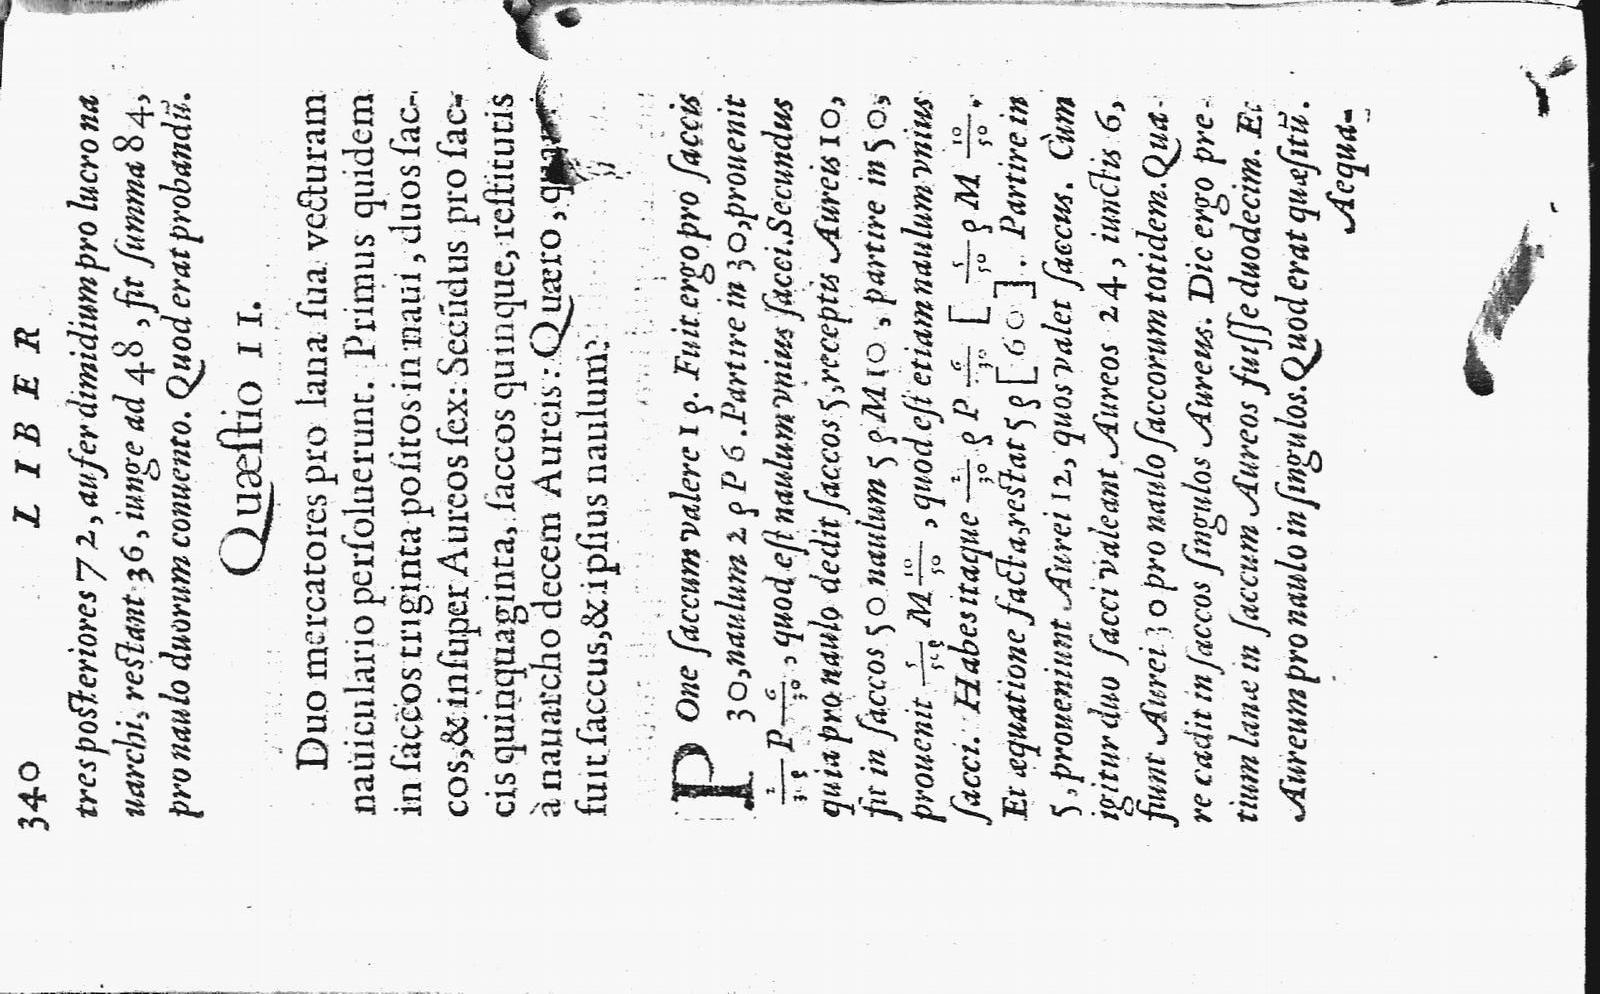 340 LIBER
tres posteriores 72, aufer dimidium pro lucro na
uarchi, restant 36, iunge ad 48, fit ſumma 84,
pro naulo duorum conuento. Quod erat probandũ.
Quæſtio II.
Duo mercatores pro lana ſua vecturam
nauiculario perſoluerunt. Primus quidem
in ſaccos triginta poſitos in naui, duos ſac-
cos, & inſuper Aureos ſex: Secũdus pro ſac-
cis quinquaginta, ſaccos quinque, reſtitutis
à nauarcho decem Aureis: Quæro,
fuit ſaccus, & ipſius naulum.
POne ſaccum valere 1 ρ. Fuit ergo pro ſaccis
30, naulum 2 ρ P 6. Partire in 30, prouenit
2/30 ρ P 6/30, quod eſt naulum vnius ſacci. Secundus
quia pro naulo dedit ſaccos 5, receptis Aureis 10,
fit in ſaccos 50 naulum 5 ρ M 10, partire in 50,
prouenit 5/50 ρ M 10/50, quod eſt etiam naulum vnius
ſacci. Habes itaque 2/30 ρ P 6/30 [ 5/50 ρ M 10/50.
Et æquatione facta, restat 5 ρ [ 60 ]. Partire in
5, proueniunt Aurei 12, quos valet ſaccus. Cùm
igitur duo ſacci valeant Aureos 24, iunctis 6,
fiunt Aurei 30 pro naulo ſaccorum totidem. Qua-
re cadit in ſaccos ſingulos Aureus. Dic ergo pre-
tium lanæ in ſaccum Aureos fuiſſe duodecim. Et
Aureum pro naulo in ſingulos. Quod erat quæſitũ.
Aequa-